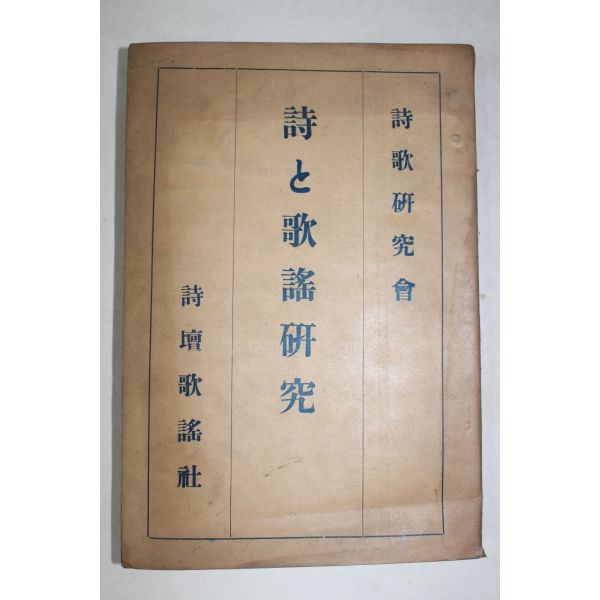 詩歌研究會
詩と歌謠研究
詩壇歌謠社